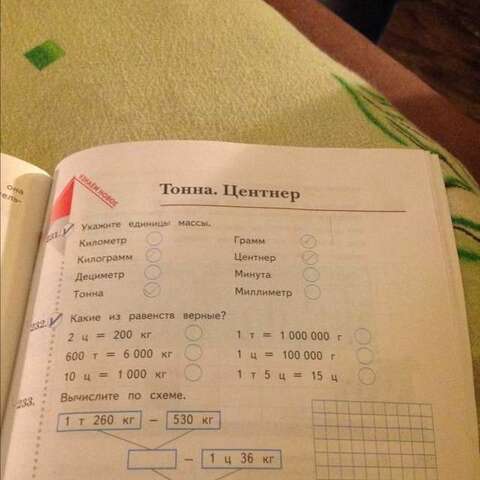 она
тель-
УЗНАЁМ НОВОЕ
Тонна. Центнер
231. Укажите единицы массы.
Километр Грамм
Килограмм Центнер
Дециметр Минута
Тонна Миллиметр
232. Какие из равенств верные?
2 ц = 200 кг 1 т = 1 000 000 г
600 т = 6 000 кг 1 ц = 100 000 г
10 ц = 1 000 кг 1 т 5 ц = 15 ц
233. Вычислите по схеме.
1 т 260 кг – 530 кг
– 1 ц 36 кг